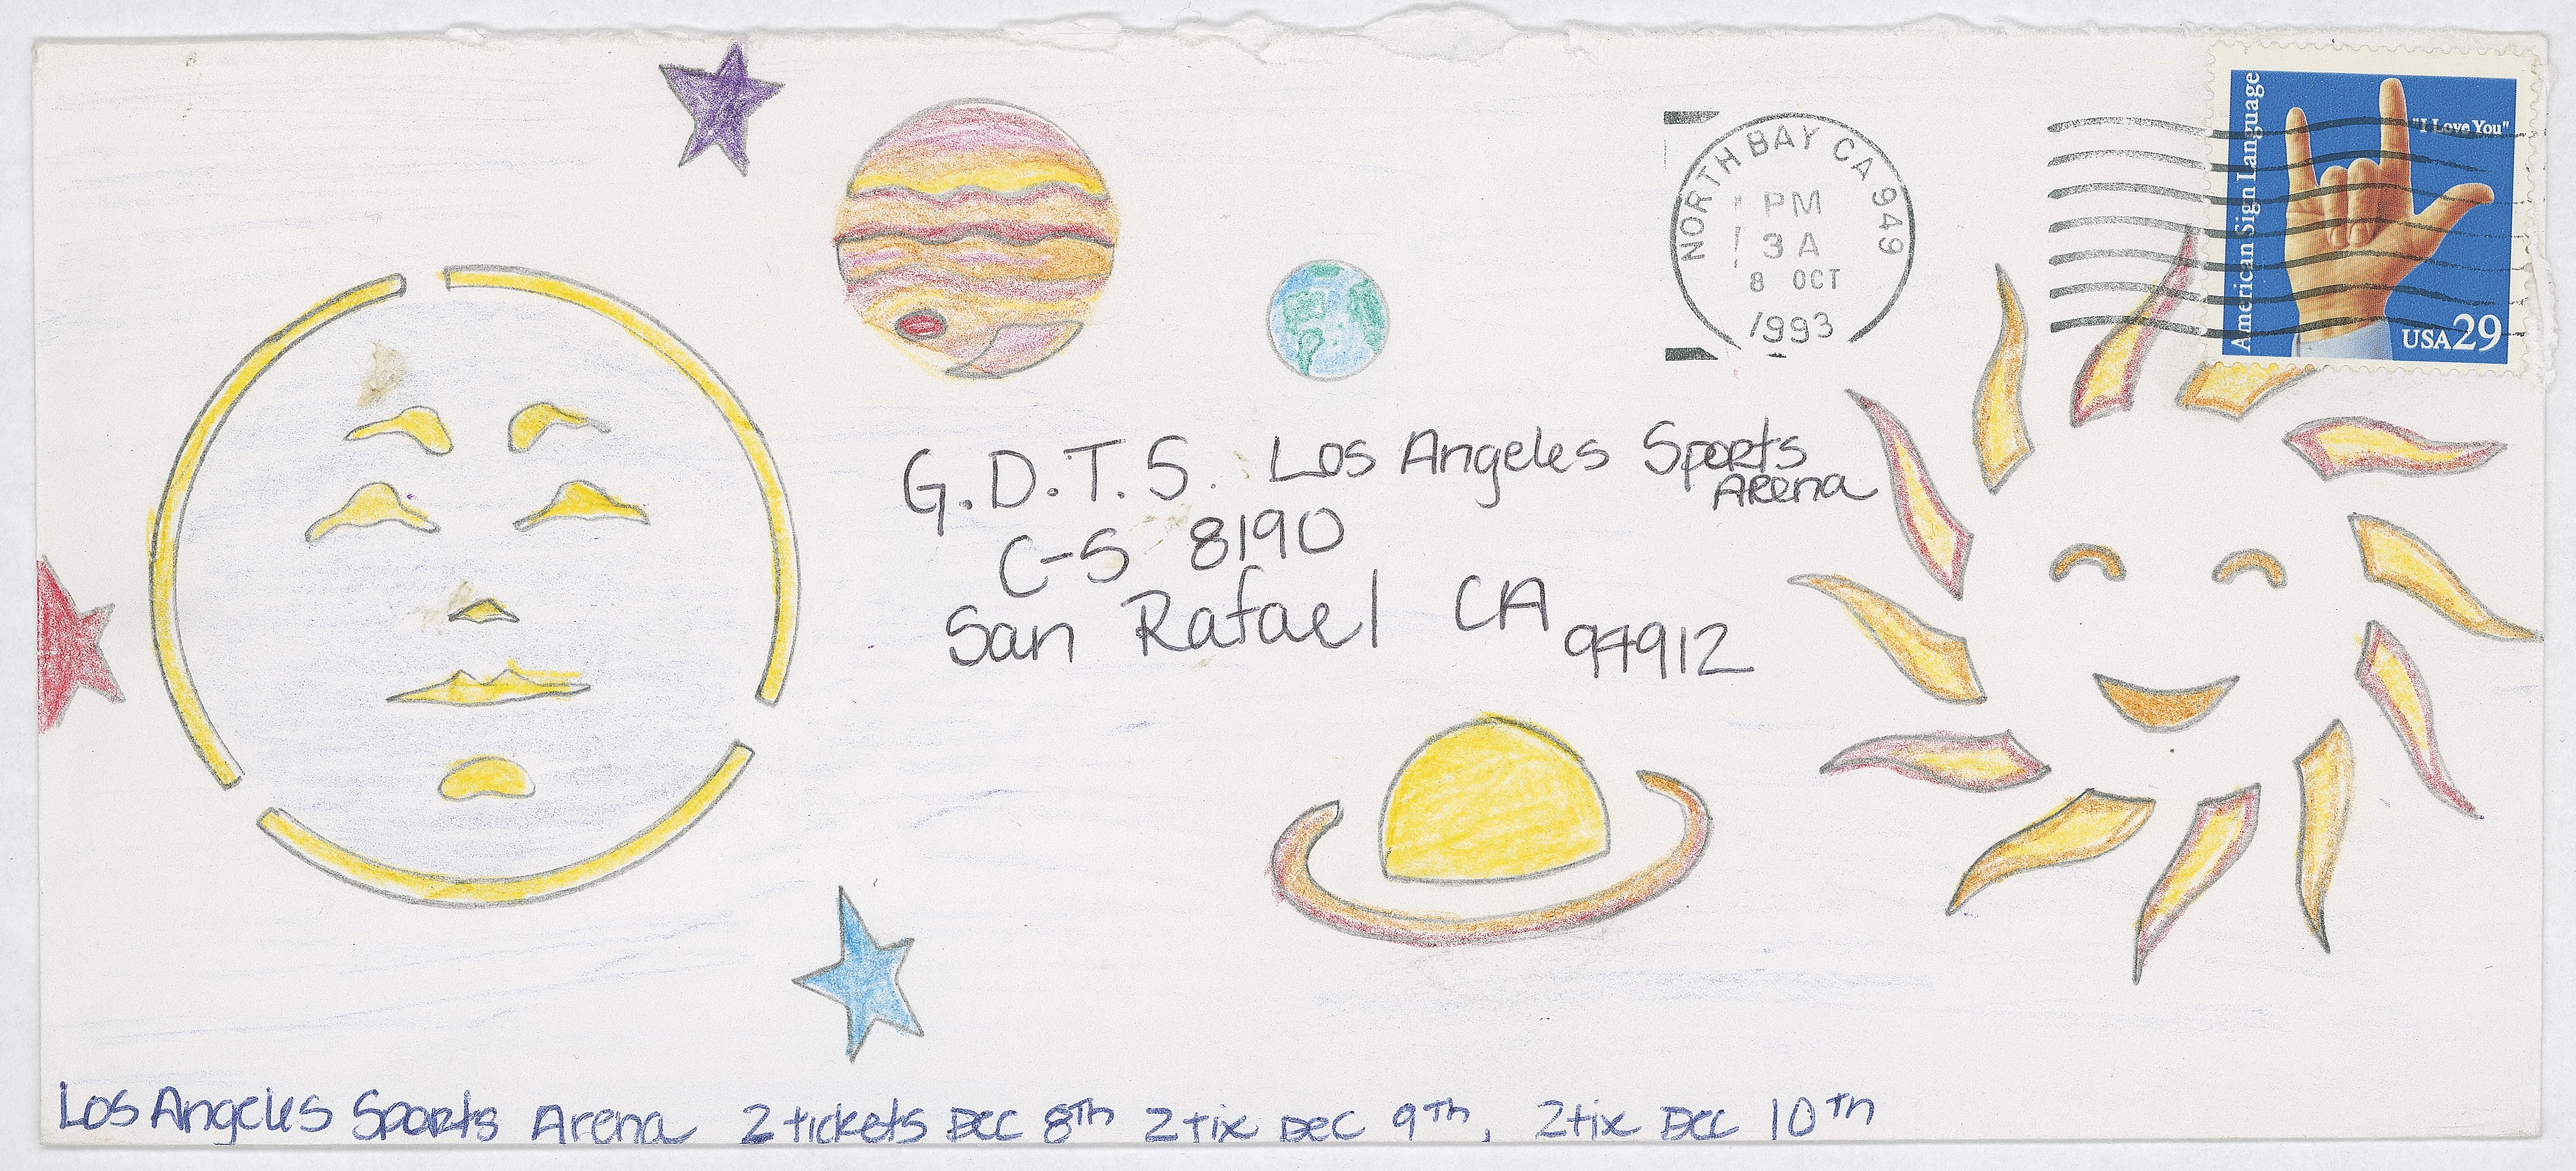 American Sign Language
"I Love You"
USA 29
NORTH BAY CA 949
PM
3 A
8 OCT
1993
G.D.T.S. Los Angeles Sports
Arena
C-S 8190
San Rafael CA
94912
Los Angeles Sports Arena 2 tickets Dec 8th 2 tix Dec 9th, 2 tix Dec 10th